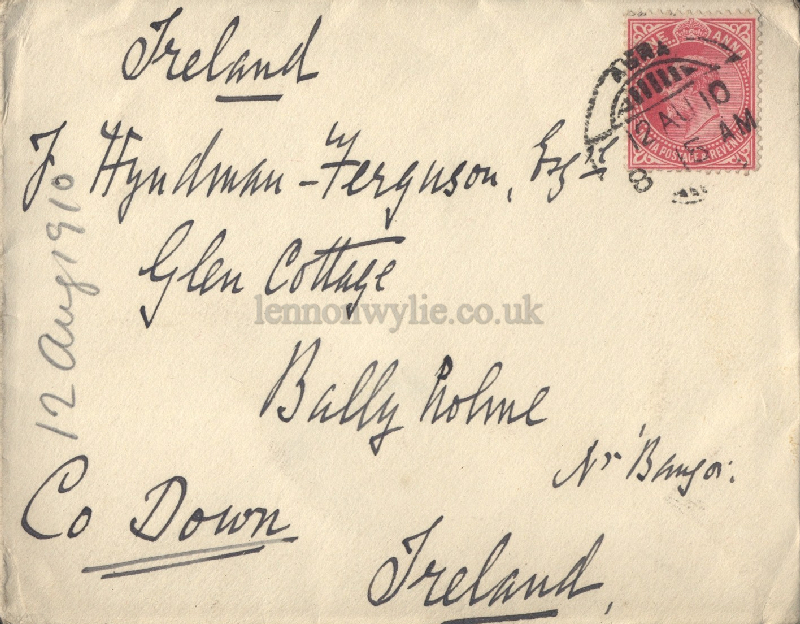 Ireland
ONE ANNA
AGRA
12 AU 10
8 AM
INDIA POSTAGE & REVENUE
J. Hyndman-Ferguson, Esqre
Glen Cottage
lennonwylie.co.uk
Bally holme
Nr Bangor.
Co Down
Ireland,
12 Aug 1910